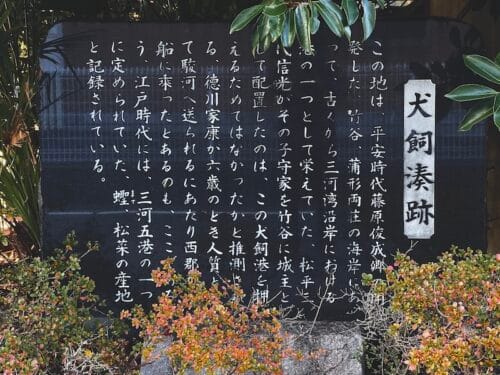 犬飼湊跡
この地は、平安時代藤原俊成卿の開
発した、竹谷、蒲形両庄の海岸にあ
って、古くから三河湾沿岸における
港の一つとして栄えていた。松平三
代信光がその子守家を竹谷に城主と
して配置したのは、この犬飼港を押
えるためではなかったかと推測され
る。徳川家康が六歳のとき人質と
て駿河へ送られるにあたり西郡の
船に乗ったとあるのも、ここ
う。江戸時代には、三河五港の一つ
に定められていた。蟶、松菜の産地
と記録されている。